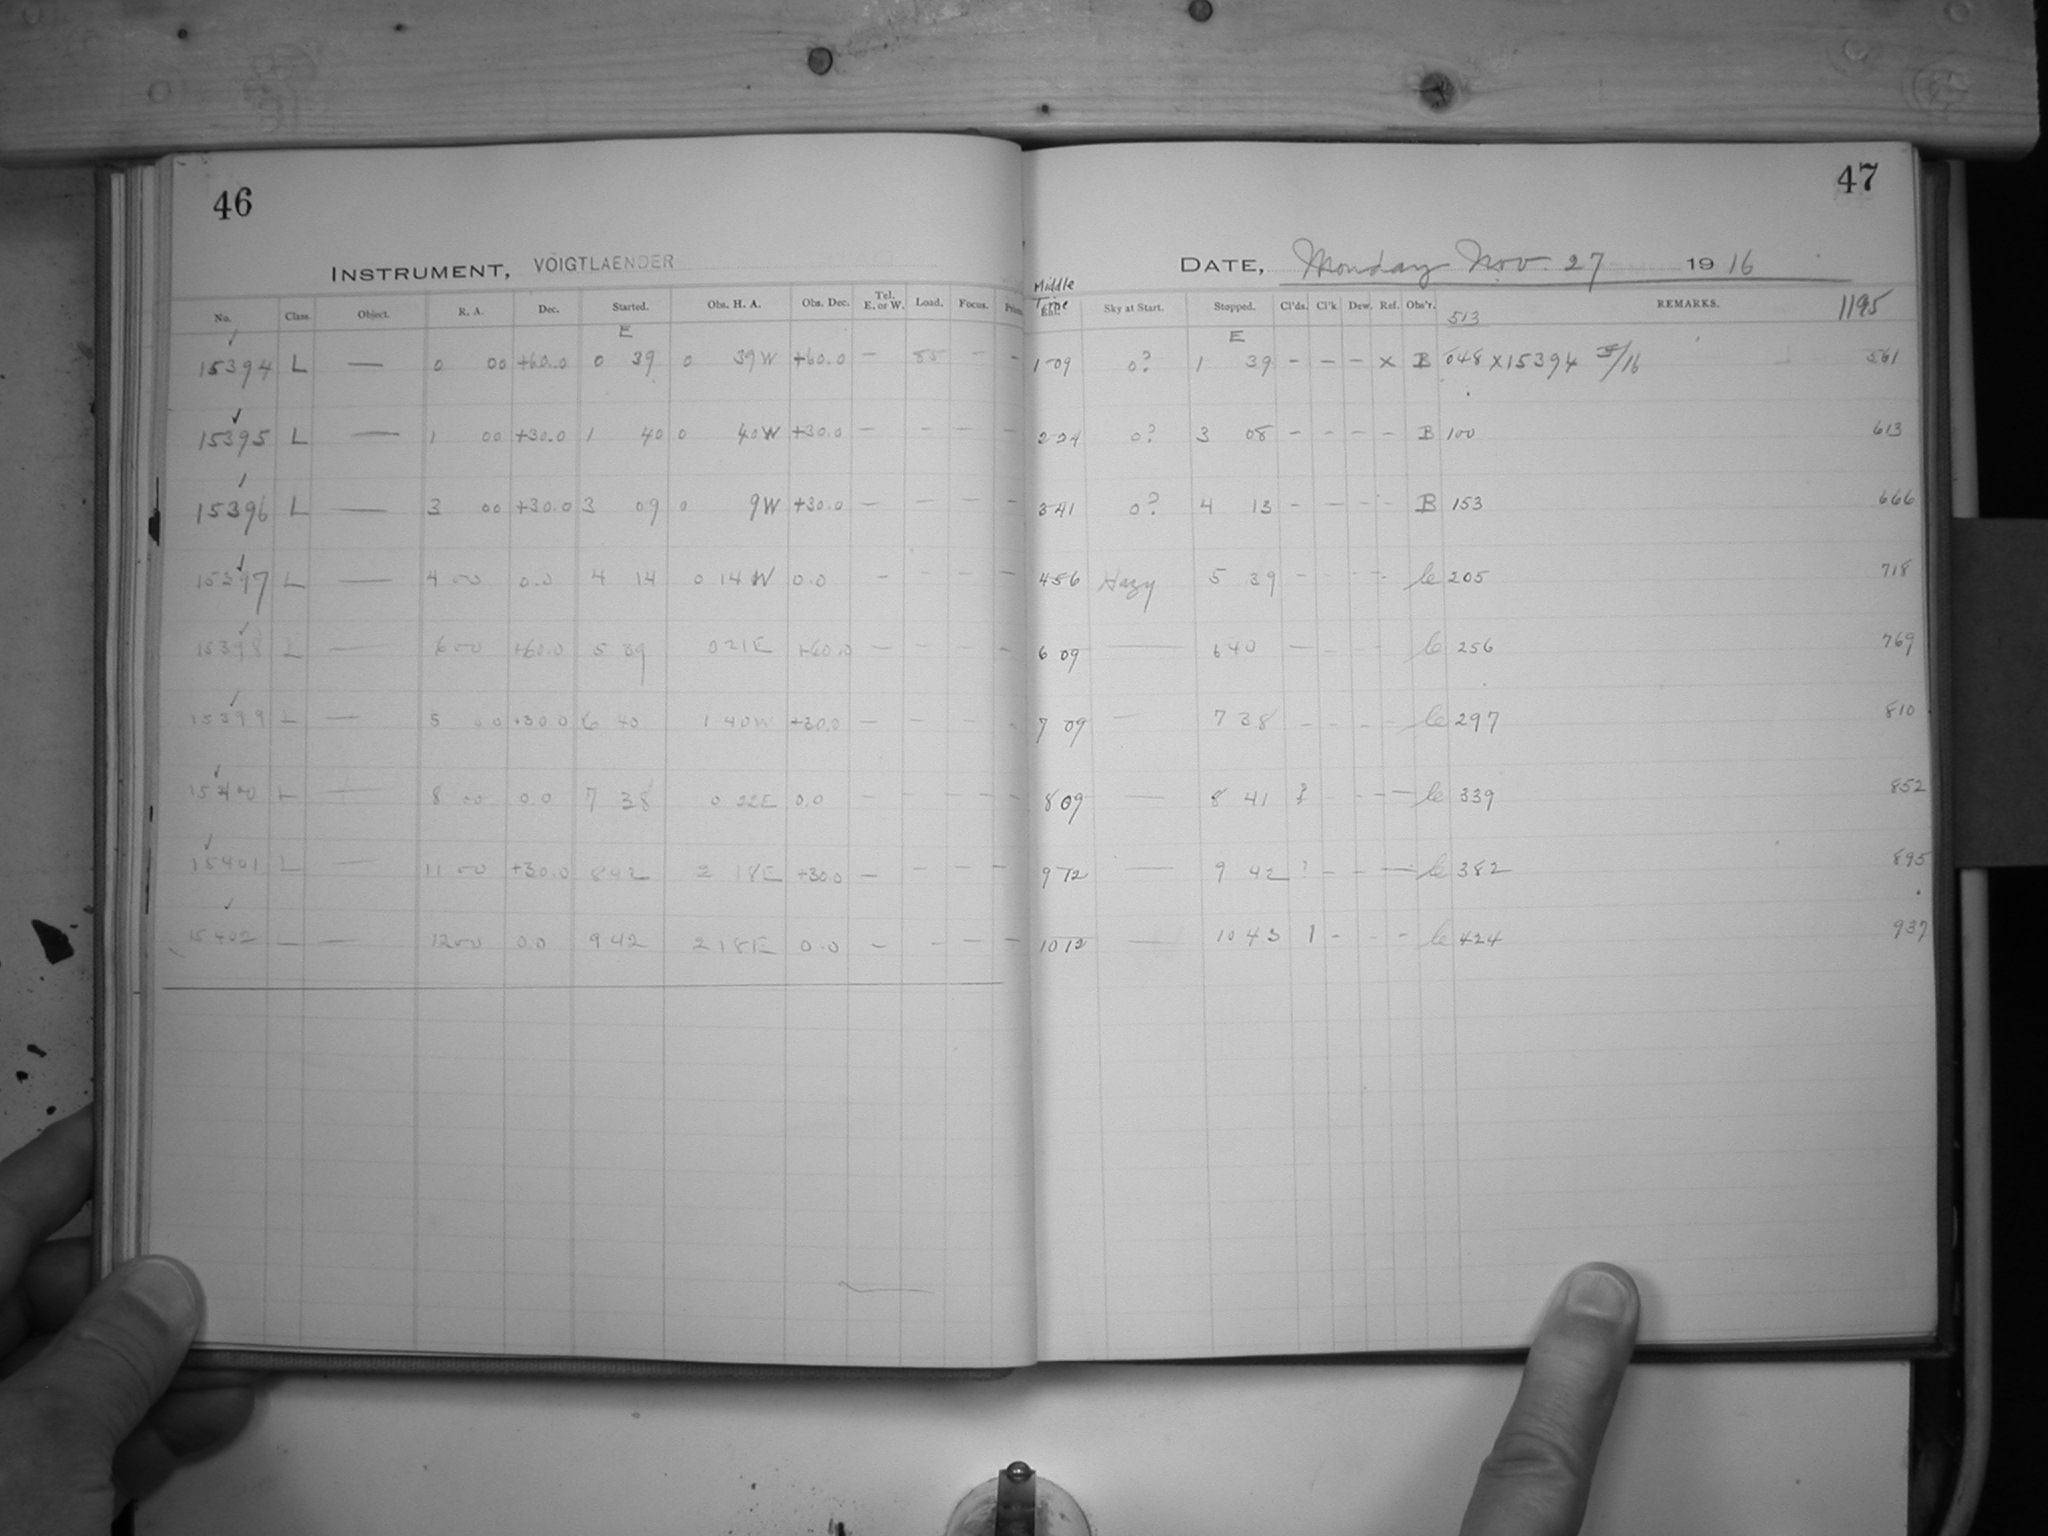 46
INSTRUMENT, VOIGTLAENDER
No. Class. Object. R. A. Dec. Started. Obs. H. A. Obs. Dec. Tel. E. or W. Load. Focus.
E
15394 L — 0 00 +60.0 0 39 0 39W +60.0 — 55 - -
15395 L — 1 00 +30.0 1 40 0 40W +30.0 — - — —
15396 L — 3 00 +30.0 3 09 0 9W +30.0 — — — —
15397 L — 4 00 0.0 4 14 0 14W 0.0 - - - -
15398 L — 6 00 +60.0 5 39 0 21E +60.0 — - - -
15399 L — 5 00 +30.0 6 40 1 40W +30.0 — - - -
15400 L — 8 00 0.0 7 38 0 22E 0.0 — - - -
15401 L — 11 00 +30.0 8 42 2 18E +30.0 — - - —
15402 L — 12 00 0.0 9 42 2 18E 0.0 — - - —
47
DATE, Monday Nov. 27 1916
Middle Time Sky at Start. Stopped. Cl'ds. Cl'k Dew. Ref. Obs'r. REMARKS. 1195
E 513
1 09 0? 1 39 - - - x B 048 X15394 /16 561
2 24 0? 3 08 - - - - B 100 613
3 41 0? 4 13 - - - - B 153 666
4 56 Hazy 5 39 - - - - le 205 718
6 09 — 6 40 — - - - le 256 769
7 09 — 7 38 - - - - le 297 810
8 09 — 8 41 - - — le 339 852
9 12 — 9 42 ? - - — le 382 895
10 12 — 10 43 1 - - - le 424 937